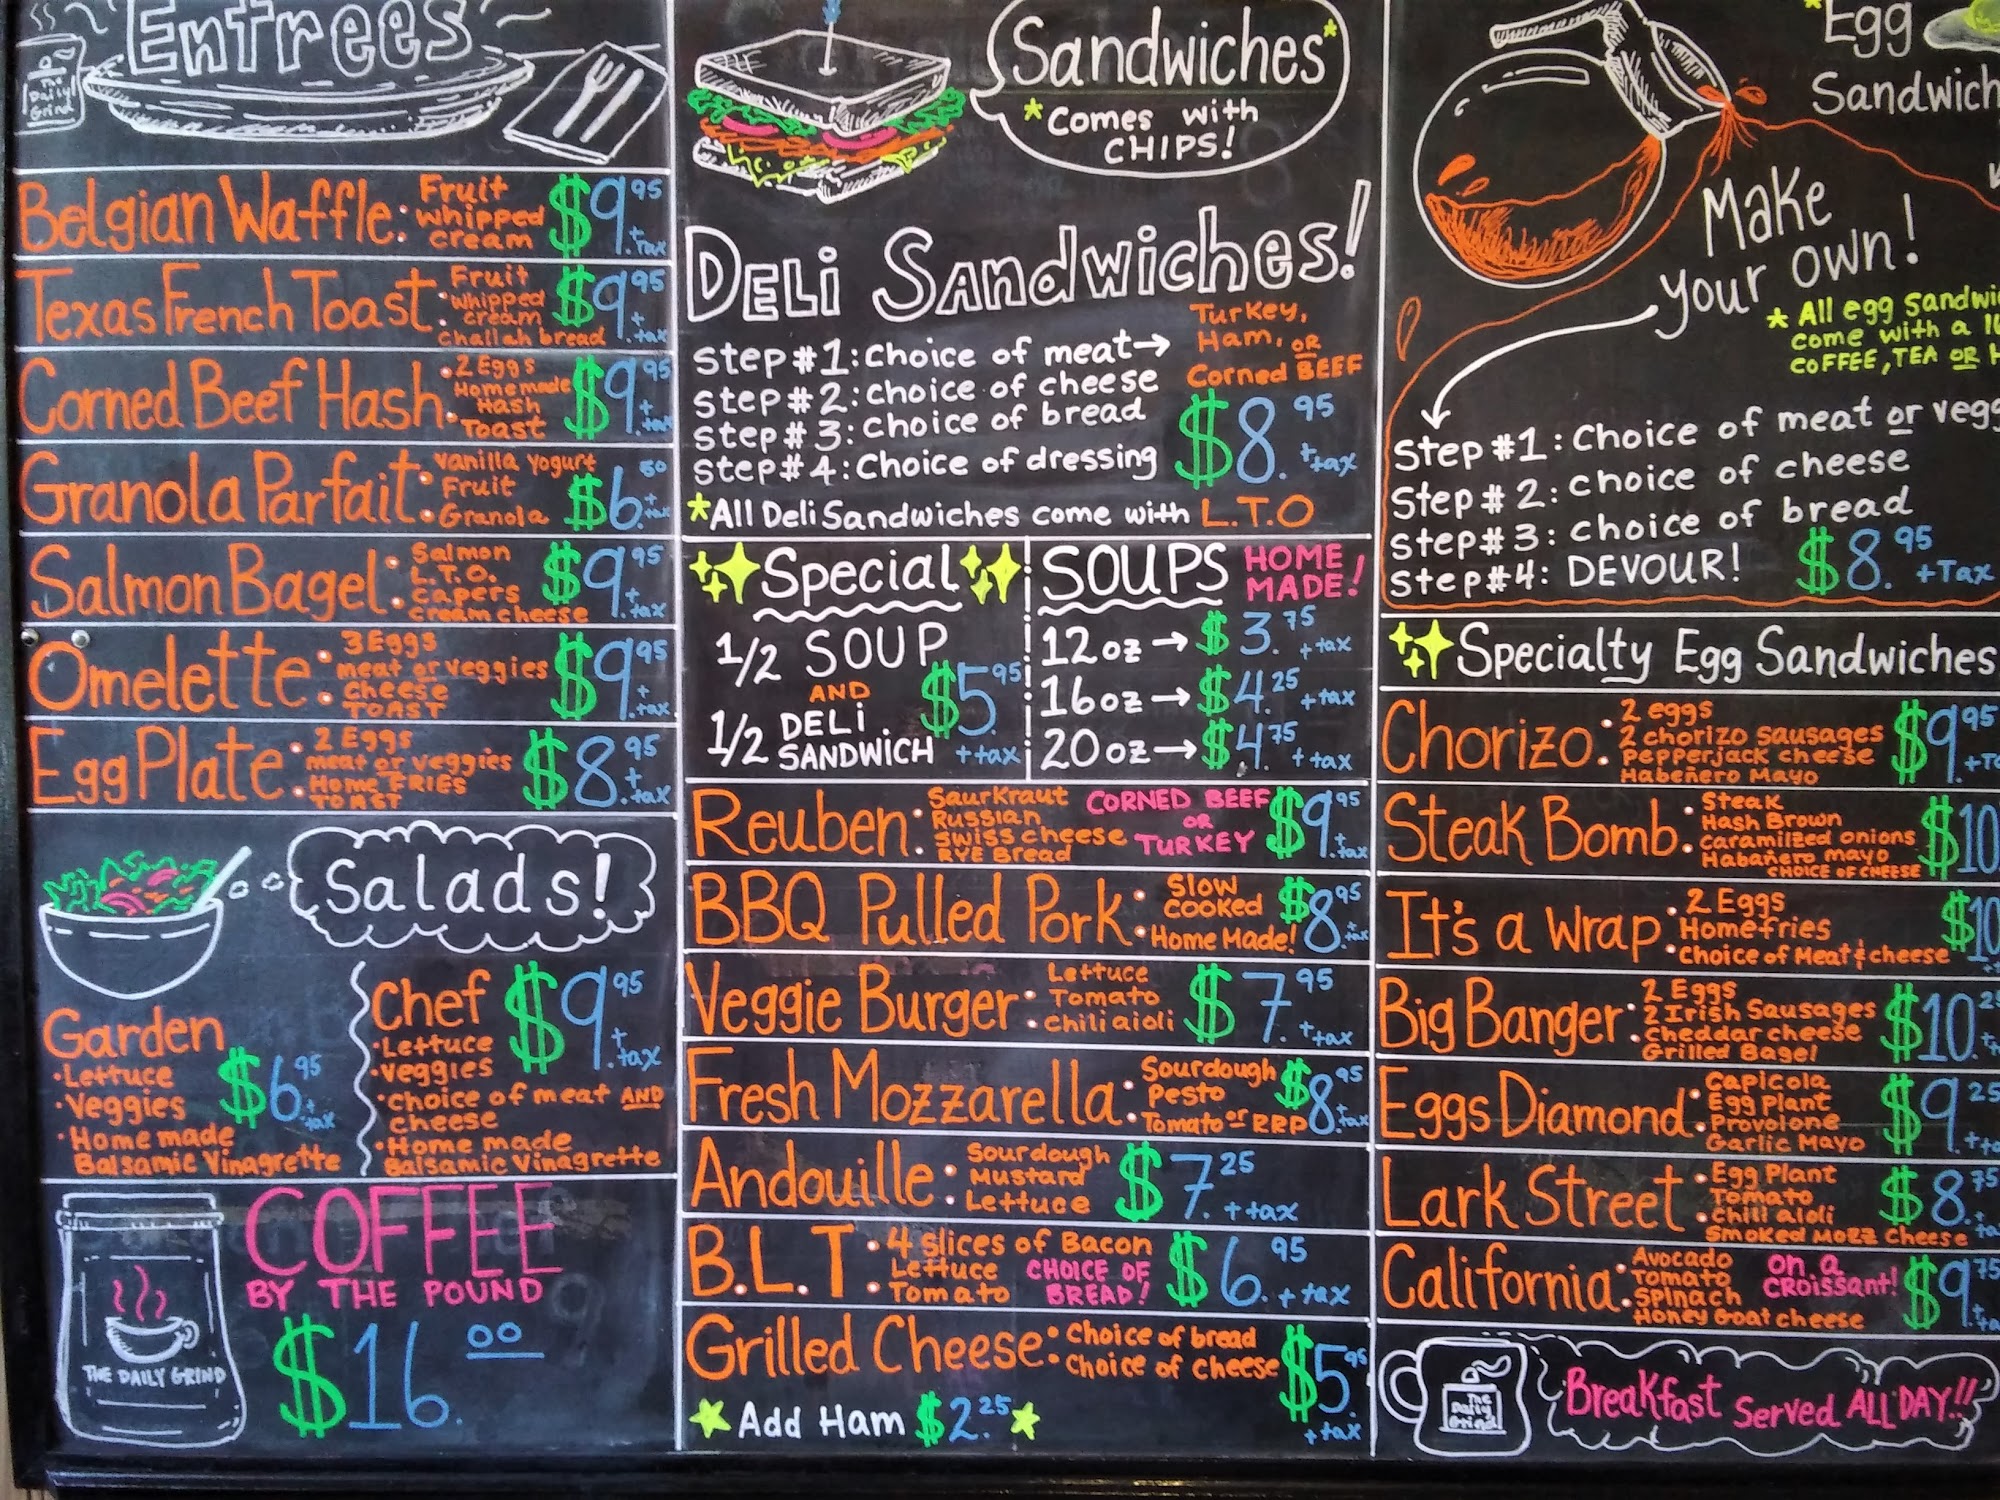 Entrees
The
Daily
Grind
Belgian Waffle: Fruit
whipped
cream
$9.95
+tax
Texas French Toast: Fruit
whipped
cream
challah bread
$9.95
+tax
Corned Beef Hash: 2 Eggs
Homemade
Hash
Toast
$9.95
+tax
Granola Parfait: Vanilla Yogurt
Fruit
Granola
$6.50
+tax
Salmon Bagel: Salmon
L.T.O.
capers
cream cheese
$9.95
+tax
Omelette: 3 Eggs
meat or veggies
cheese
TOAST
$9.95
+tax
Egg Plate: 2 Eggs
meat or veggies
Home FRIES
TOAST
$8.95
+tax
Salads!
Garden
·Lettuce
·Veggies
·Home made
Balsamic Vinagrette
$6.95
+tax
Chef
·Lettuce
·veggies
·choice of meat AND
cheese
·Home made
Balsamic Vinagrette
$9.95
+tax
COFFEE
BY THE POUND
$16.00
THE DAILY GRIND
Sandwiches*
*Comes with
CHIPS!
DELi SANdwicHes!
Step #1: Choice of meat→
Turkey,
Ham, OR
Corned BEEF
Step #2: Choice of cheese
Step #3: Choice of bread
Step #4: Choice of dressing
$8.95
+tax
*All Deli Sandwiches come with L.T.O
Special
1/2 SOUP
AND
1/2 DELi
SANDWICH
$5.95
+tax
SOUPS HOME
MADE!
12oz→$3.75 +tax
16oz→$4.25 +tax
20oz→$4.75 +tax
Reuben: SaurKraut
Russian
Swiss cheese
RYE Bread
CORNED BEEF
OR
TURKEY
$9.95
+tax
BBQ Pulled Pork: Slow
cooked
Home Made!
$8.95
+tax
Veggie Burger: Lettuce
Tomato
chili aioli
$7.95
+tax
Fresh Mozzarella: Sourdough
Pesto
Tomato or RRP
$8.95
+tax
Andouille: Sourdough
Mustard
Lettuce
$7.25
+tax
B.L.T: 4 slices of Bacon
Lettuce
Tomato
CHOICE OF
BREAD!
$6.95
+tax
Grilled Cheese: Choice of bread
Choice of cheese
$5.95
+tax
Add Ham $2.25
*Egg
Sandwich
Make
your own!
* All egg sandwi
come with a
COFFEE, TEA OR H
Step #1: Choice of meat or vegg
Step #2: Choice of cheese
Step #3: Choice of bread
Step #4: DEVOUR!
$8.95
+Tax
Specialty Egg Sandwiches
Chorizo: 2 eggs
2 chorizo sausages
Pepperjack cheese
Habeñero Mayo
$9.95
Steak Bomb: Steak
Hash Brown
Caramilzed onions
Habañero mayo
CHOICE OF CHEESE
$10
It's a Wrap: 2 Eggs
Homefries
Choice of Meat & cheese
$10
Big Banger: 2 Eggs
2 Irish Sausages
Cheddar cheese
Grilled Bagel
$10.25
Eggs Diamond: Capicola
Egg Plant
Provolone
Garlic Mayo
$9.25
Lark Street: Egg Plant
Tomato
Chili aioli
Smoked Mozz Cheese
$8.75
California: Avocado
Tomato
Spinach
Honey Goat cheese
on a
CROissant!
$9.75
The
Daily
Grind
Breakfast Served ALL DAY!!